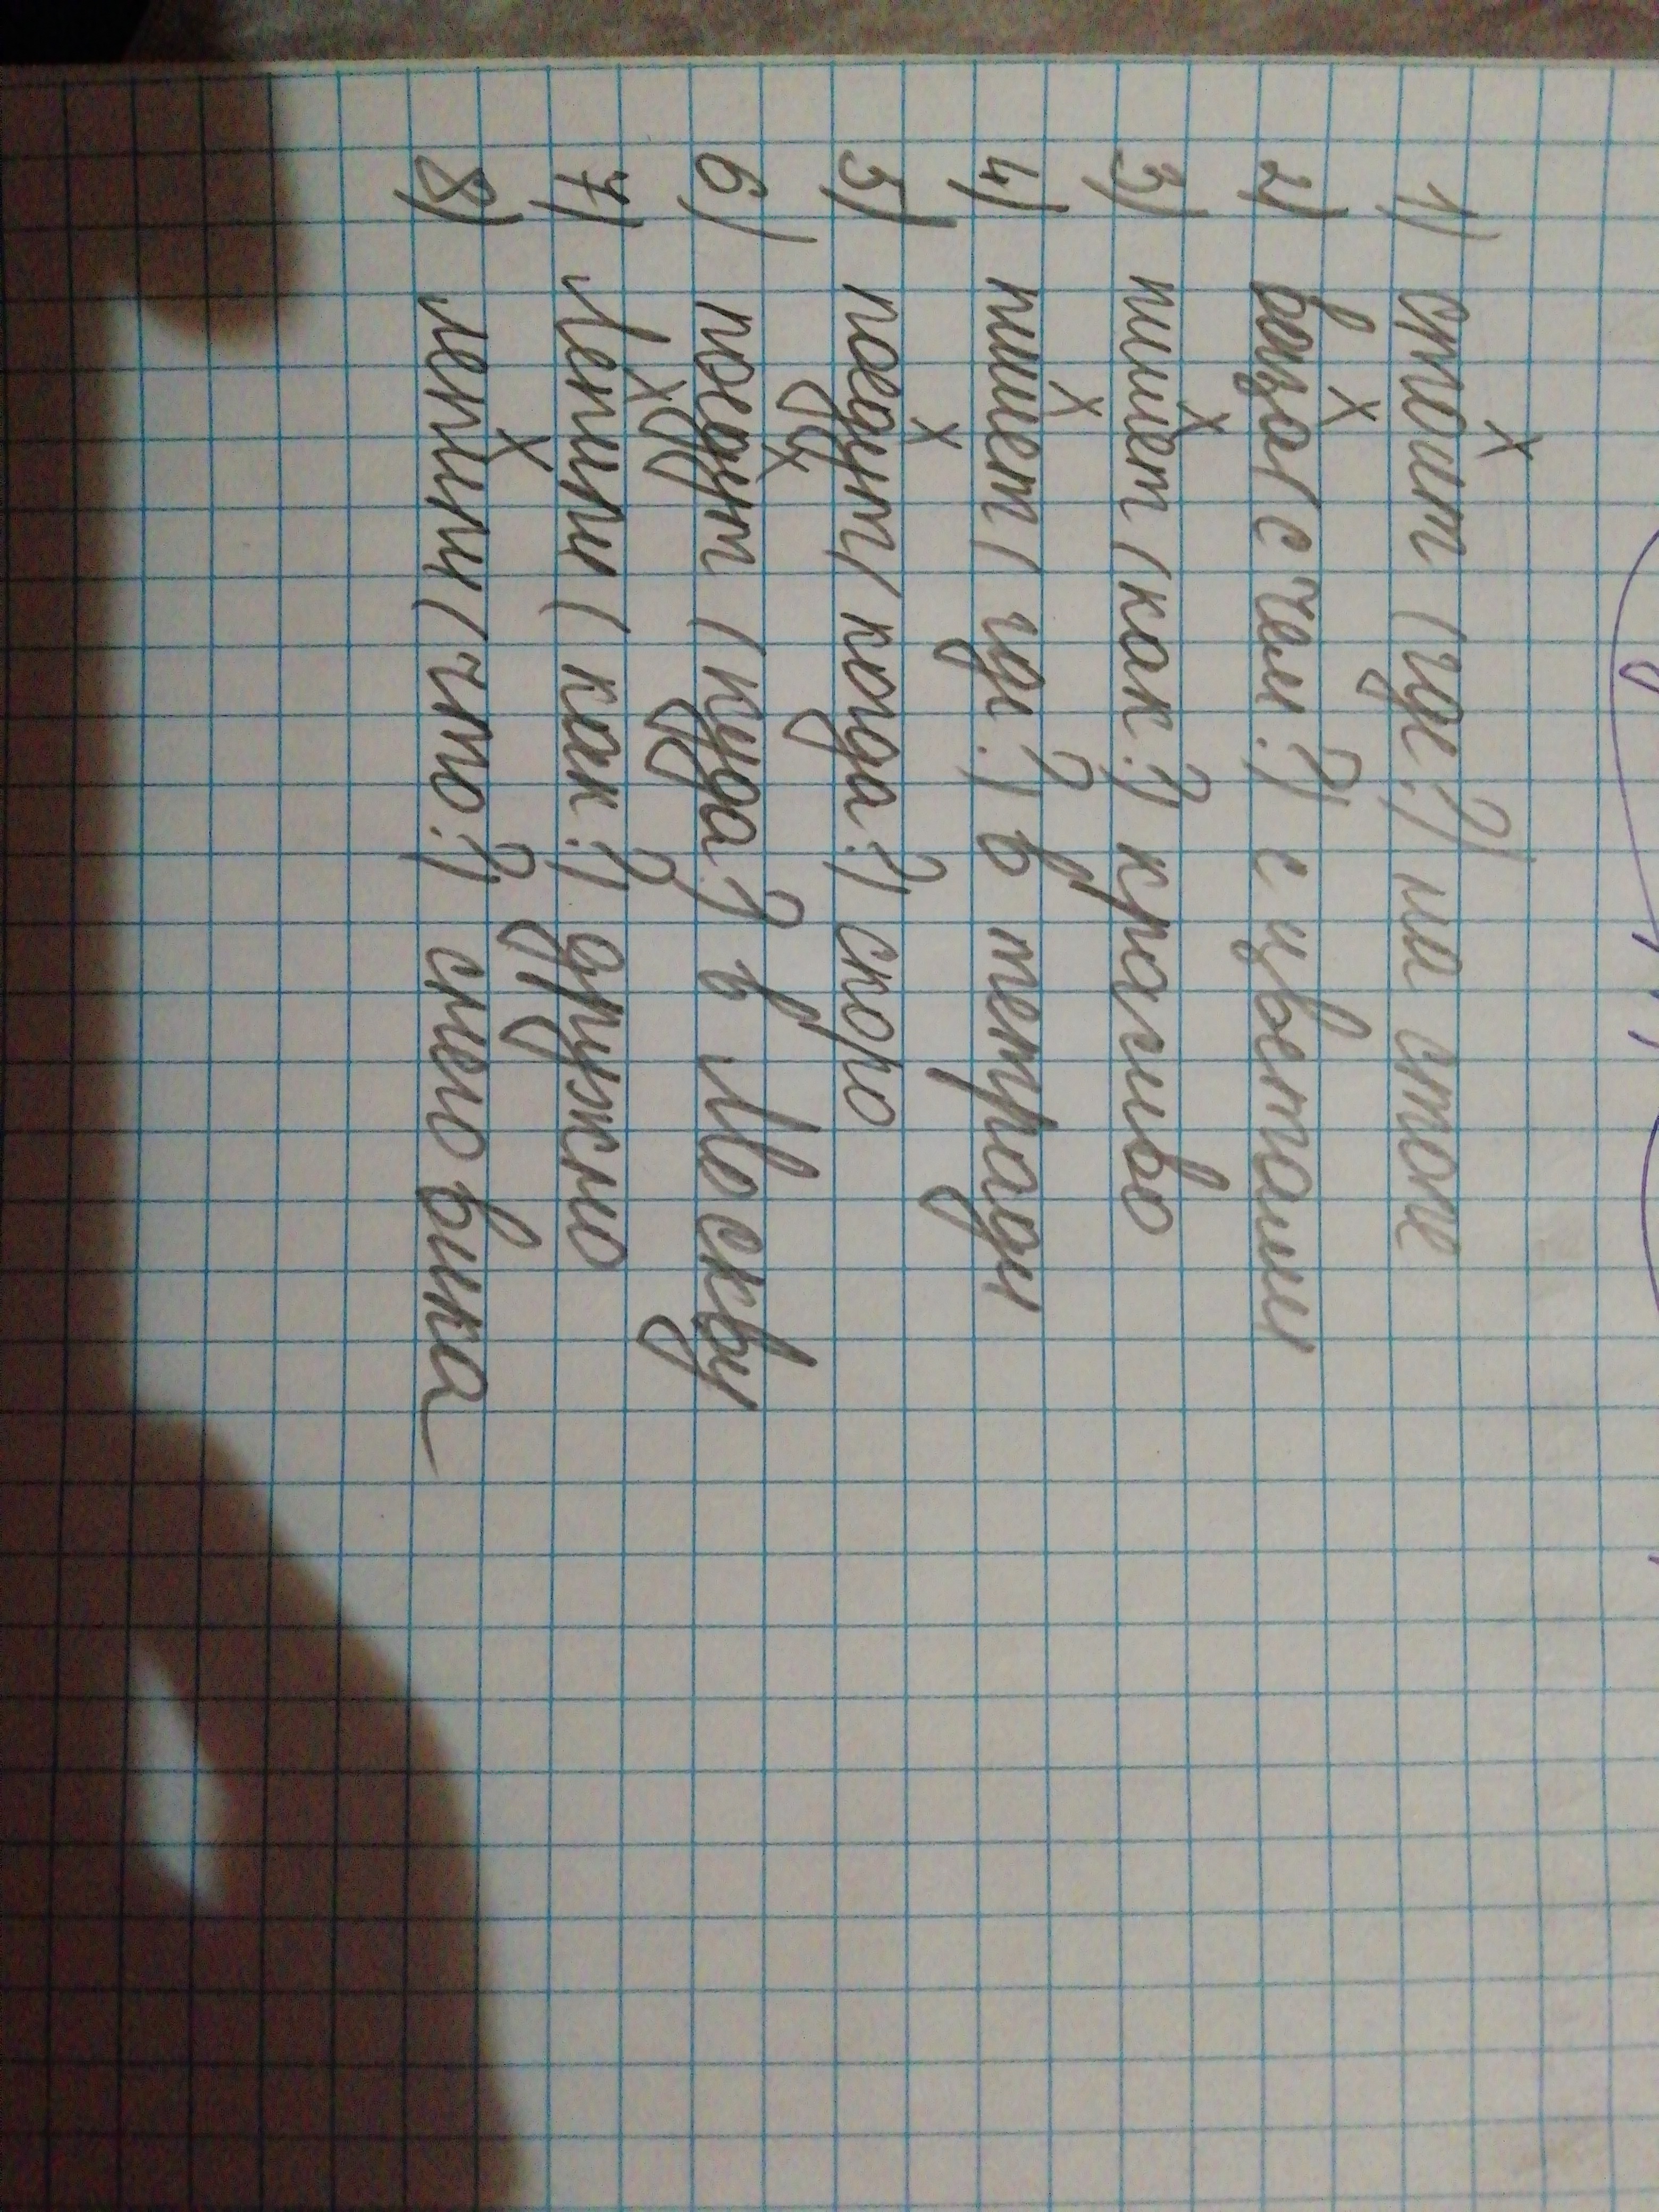 1) стоит (где?) на столе
2) ваза (с чем?) с цветами
3) пишет (как?) красиво
4) пишет (где?) в тетради
5) поедут (когда?) скоро
6) поедут (куда?) в Москву
7) Лепили (как?) дружно
8) лепили (что?) снеговика